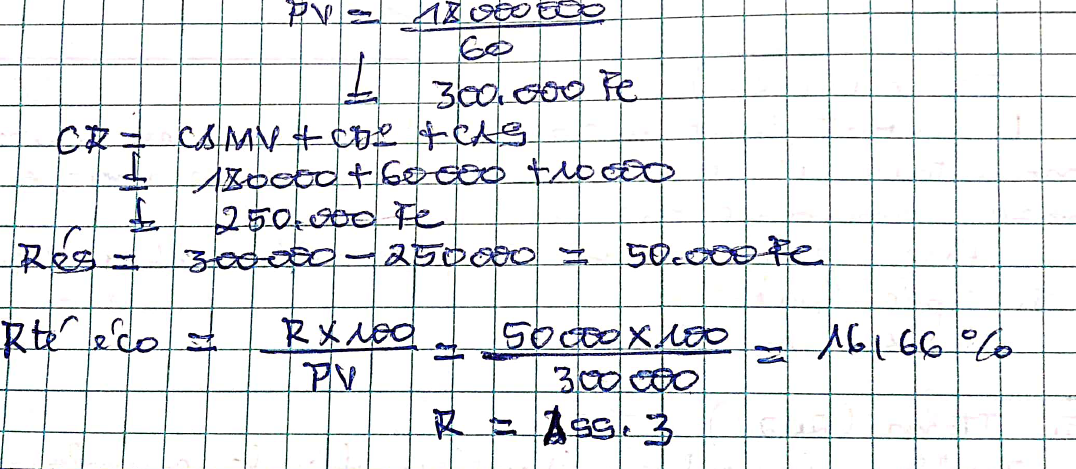 PV = 18 000 000
60
= 300.000 Fc
CR = CAMV + CDE + CAS
= 180000 + 60 000 + 10 000
= 250.000 Fc
Rés = 300 000 - 250 000 = 50.000 Fc
Rté éco = R x 100 / PV = 50 000 x 100 / 300 000 = 16,66 %
R = Ass. 3